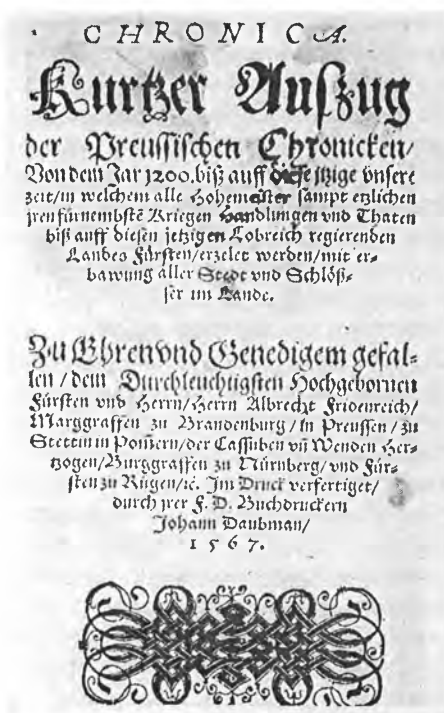 CHRONICA.
Kurtzer Außzug
der Preussischen Chronicken/
Von dem Jar 1200. biß auff diese itzige vnsere
zeit/in welchem alle Hohemeister sampt etzlichen
jren fürnembstē Kriegen Handlungen vnd Thaten
biß auff diesen jetzigen Lobreich regierenden
Landes Fürsten/erzelet werden/mit er-
bawung aller Stedt vnd Schlöß-
ser im Lande.
Zu Ehren vnd Genedigem gefal-
len / dem Durchleuchtigsten Hochgebornen
Fürsten vnd Herrn/Herrn Albrecht Fridenreich/
Marggraffen zu Brandenburg/in Preussen/zu
Stettin in Pom̄ern/der Cassuben vn̄ Wenden Her-
tzogen/Burggraffen zu Nürnberg/vnd Für-
sten zu Rügen/ꝛc. Im Druck verfertiget/
durch jrer F. D. Buchdruckern
Johann Daubman/
1567.